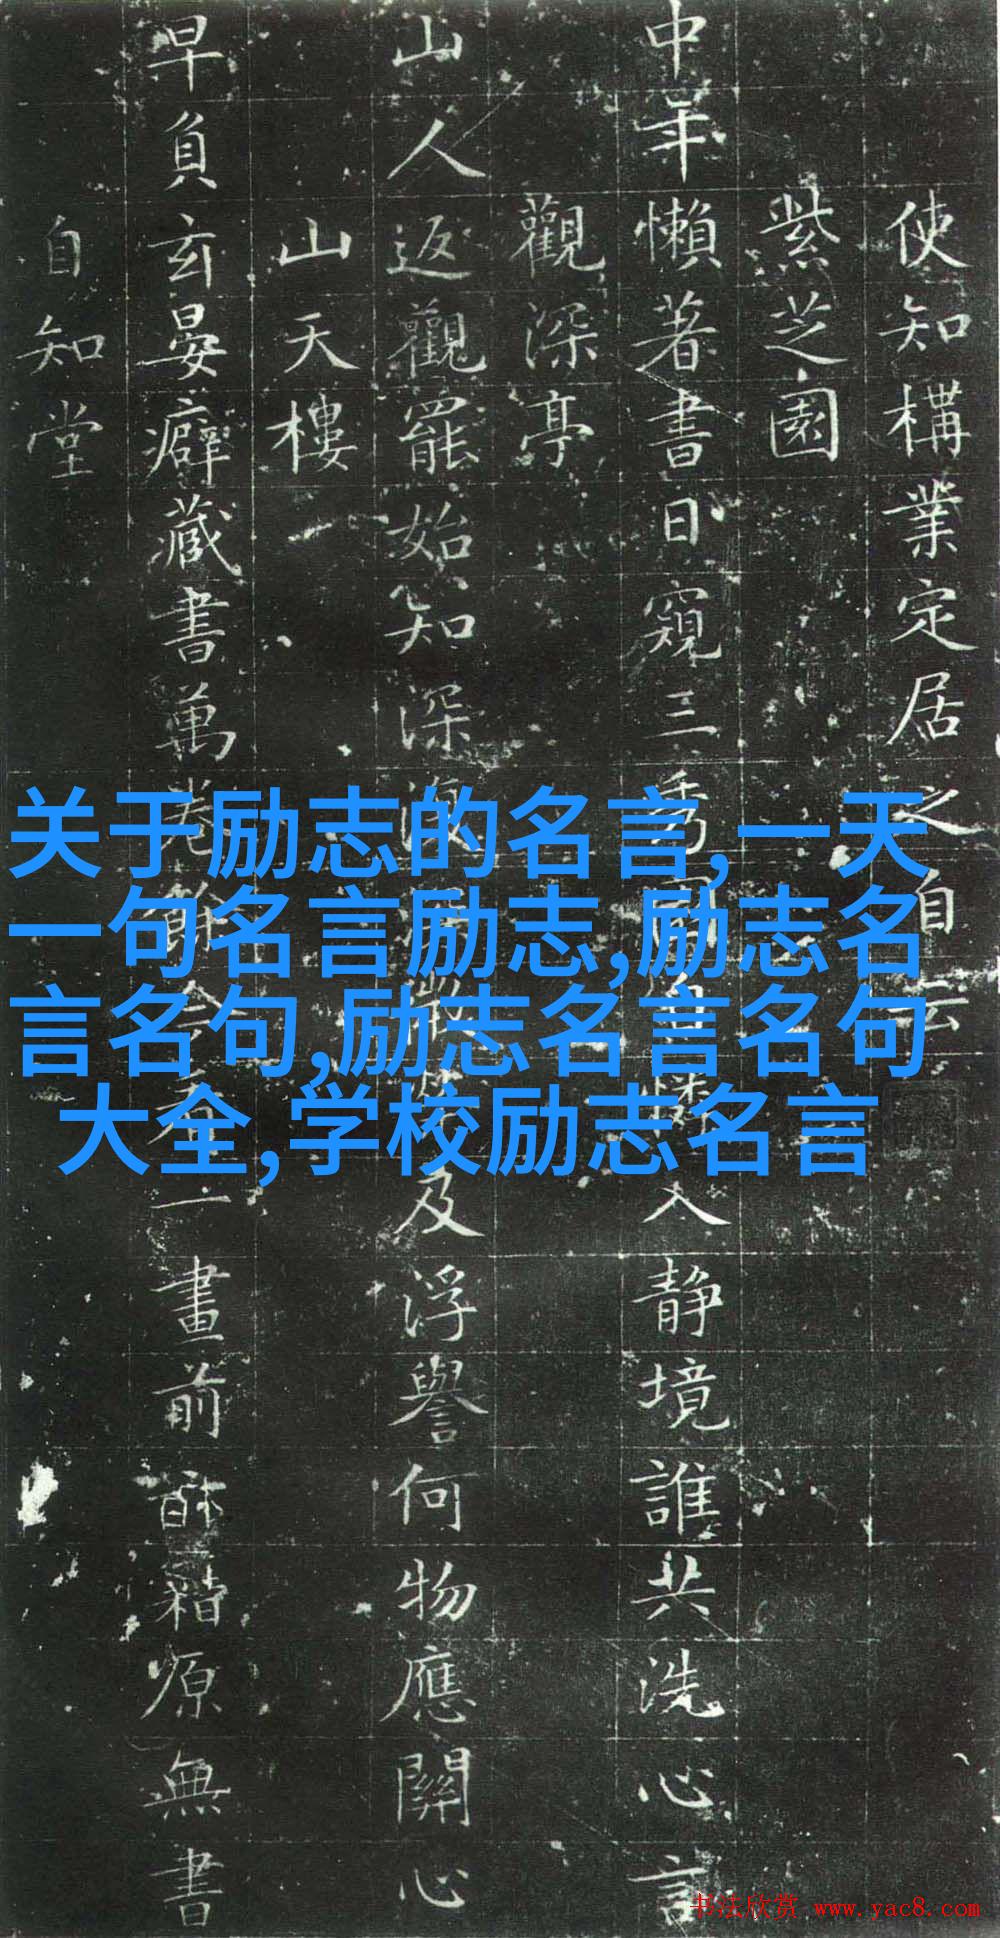 使知構業定居之自云
紫芝園
中年懶著書日窺三入静境誰共洗心言
觀深亭
山人返觀罷始知深及浮譽何物應關心
山天樓
早負玄晏癖藏書萬卷餘一畫前籍原無書
自知堂
关于励志的名言,一天
一句名言励志,励志名
言名句,励志名言名句
大全,学校励志名言
书法欣赏 www.yac8.com